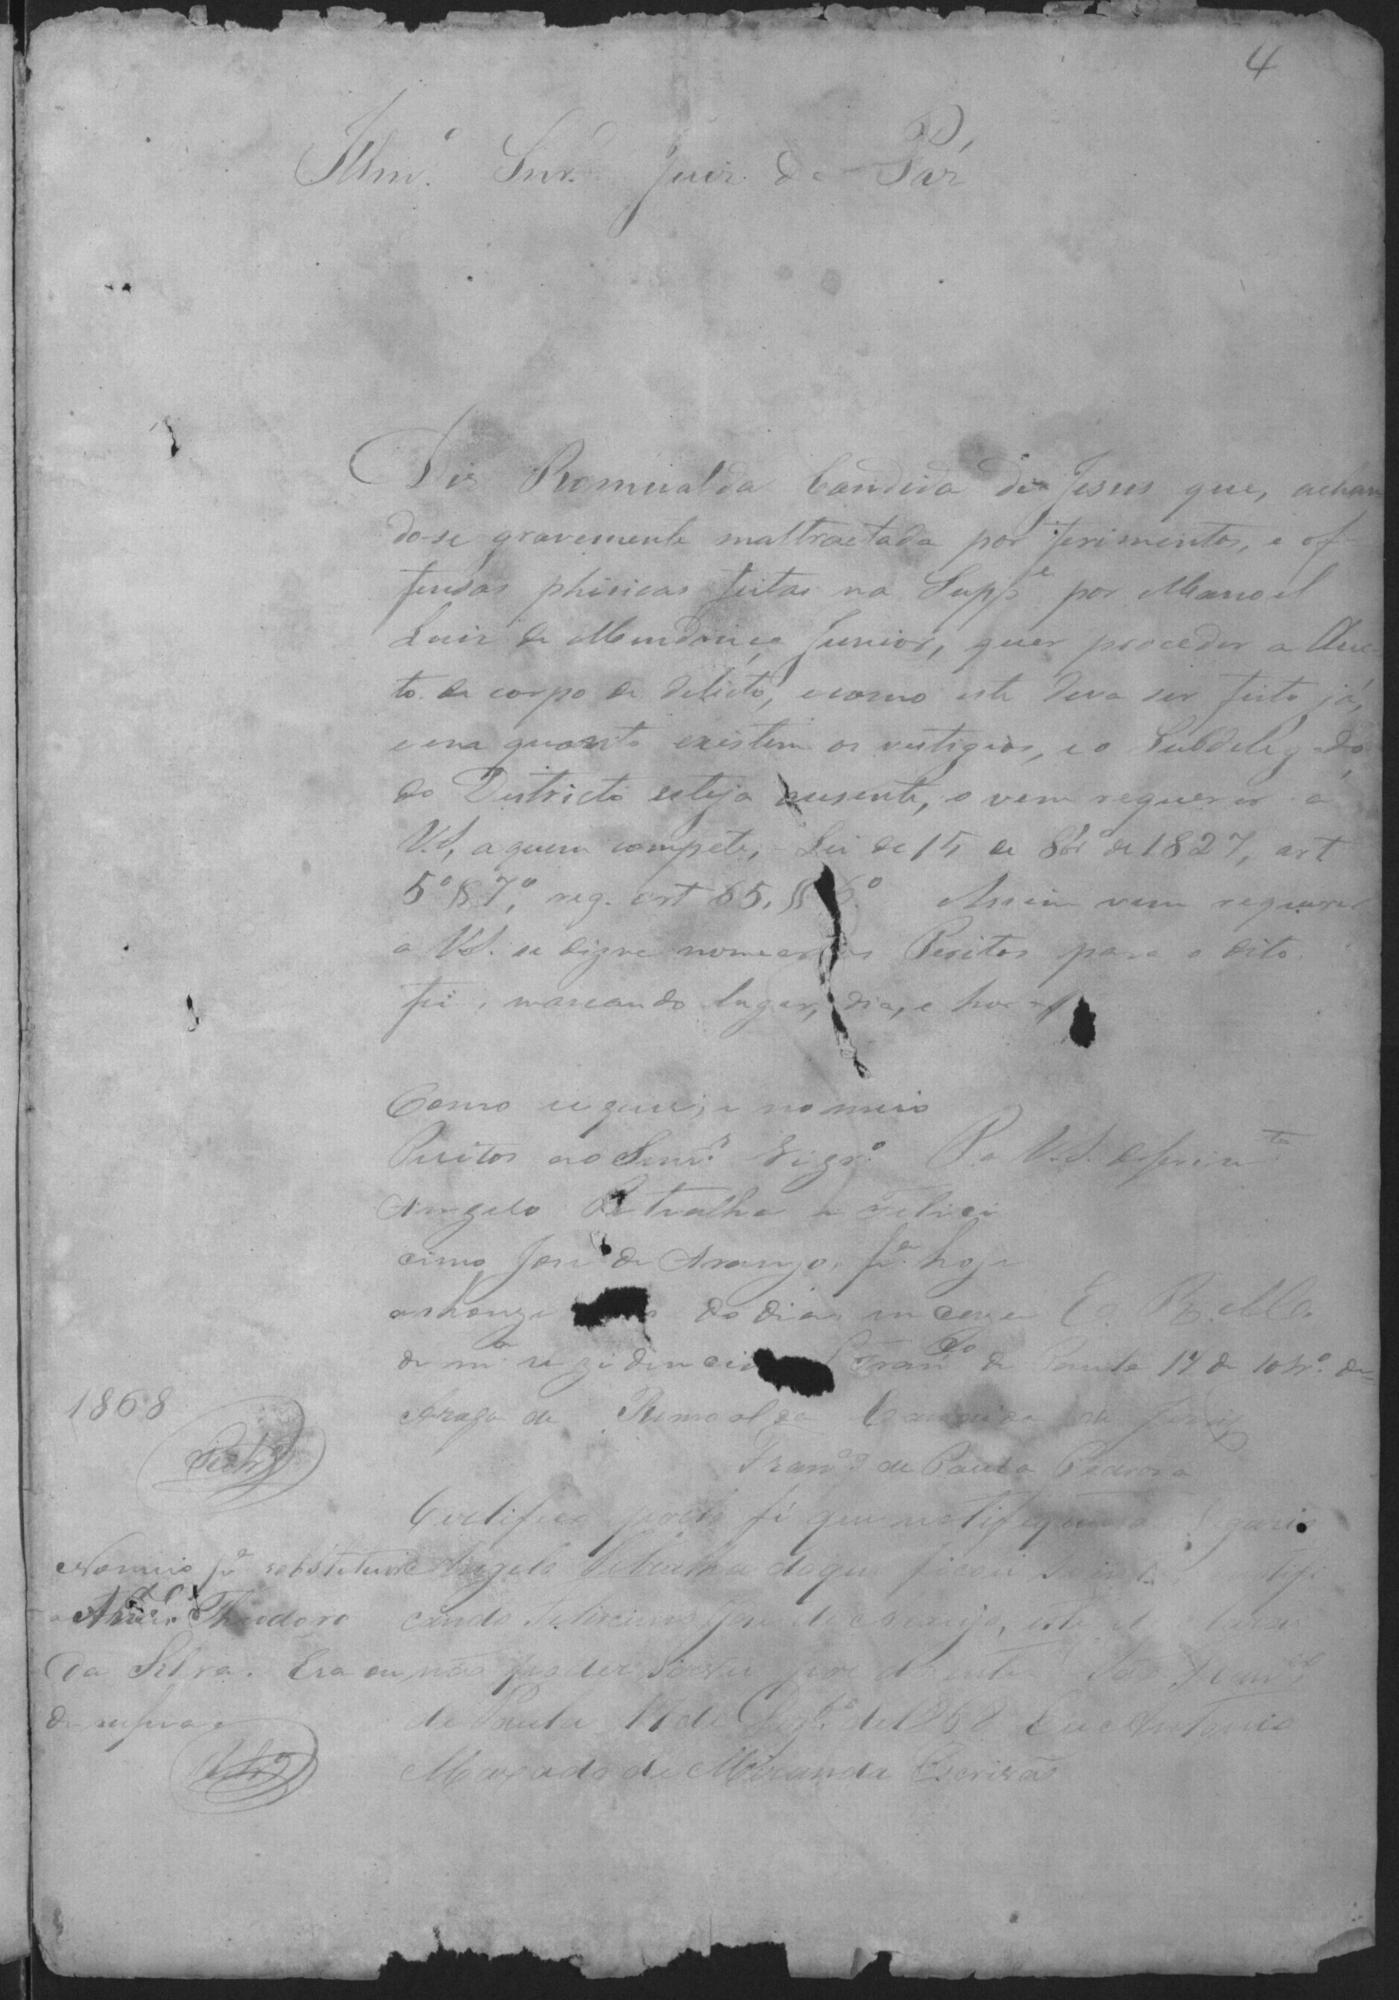 4
Illmº Snr. Juiz de Paz
Diz Romualda Candida de Jesus que, achan
do-se gravemente maltractada por ferimentos, e of
fensas phisicas feitas na Suppe por Manoel
Luiz de Mendonça Junior, quer proceder a Auc
to de corpo de delicto, e como este deva ser feito já,
em quanto existem os vestigios, e o Subdelegado
do Districto esteja ausente, o vem requerer a
V.S, a quem compete, Lei de 15 de 8br de 1827, art
5º § 7º, reg. art 65. § 6º Assim vem requerer
a V.S. se digne nomear os Peritos para o dito
fi, marcando lugar, dia, e hora
Como requer, e nomeio
Peritos ao Senr. Vigrº P. a V.S. deferimto
Angelo Petralha e Felici
cimo José de Araujo, pª hoje
as honze do dia, em caza E. R. Mce.
de mª rezidencia S Franco de Paula 17 de 10brº de
1868
Araga de Rumoalda Candida de Jesus
Franco de Paula Pedroza
Certifico porto fé que notifiquei o Vigario
Angelo Petralha do que ficou sciente notifi
cando Felicimo José de Araujo, este declarou
não poder por doente São Franco
de Paula 17 de Dezbro de 1868 Eu Antonio
Maxado de Miranda Escrivão
Nomeio pª substituir
a Anto. Theodoro
da Silva. Era ou